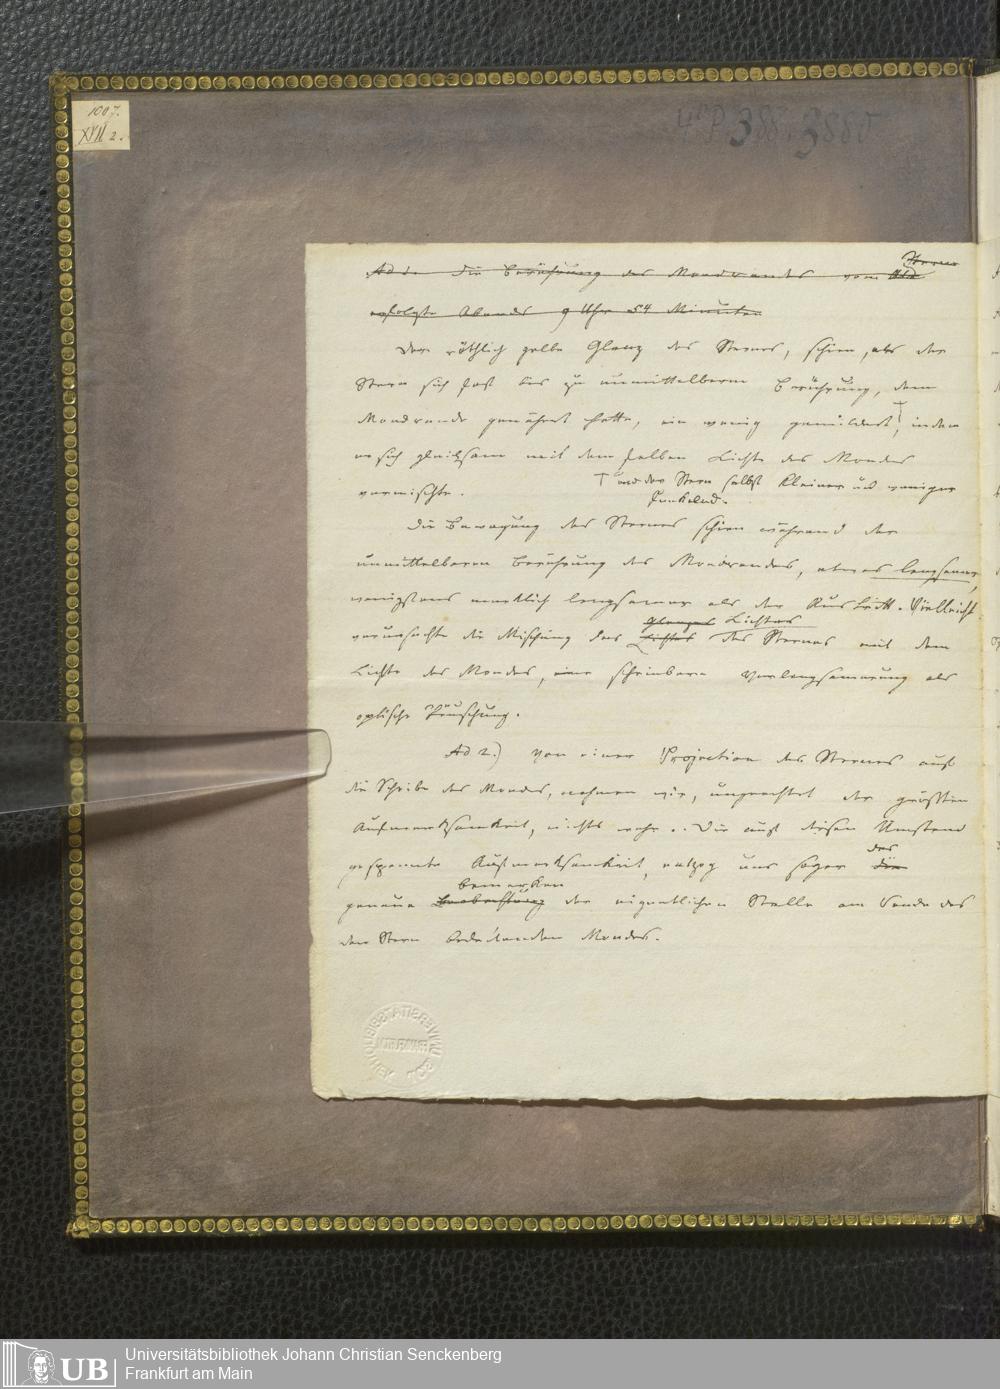 1007.
XVII 2.
4° P 388. 3880
Ad 1. Die Berührung des Mondrandes vom Sterne
erfolgte Abends 9 Uhr 54 Minuten
Der röthlich gelbe Glanz des Sternes, schien, als der
Stern sich fast bis zu unmittelbarem Berührung, dem
Mondrande genähert hatte, ein wenig gemildert †, indem
er sich gleichsam mit dem hellen Lichte des Mondes
vermischte.
† und der Stern selbst kleiner und weniger
funkelnd.
Die Bewegung des Sternes schien während der
unmittelbaren Berührung des Mondrandes, etwas langsamer,
wenigstens merklich langsamer als der Austritt. Vielleicht
verursachte die Mischung des Lichtes Glanzes Lichtes des Sternes mit dem
Lichte des Mondes, eine scheinbare Verlangsamerung als
optische Täuschung.
Ad 2.) Von einer Projection des Sternes auf
die Scheibe des Mondes, nahmen wir, ungeachtet der größten
Aufmerksamkeit, nichts wahr. Die auf diesen Umstand
gespannte Aufmerksamkeit, entzog uns sogar die das
genaue Beobachtung bemerken der eigentlichen Stelle am Rande des
den Stern bedeckenden Mondes.
UNIVERSITÄTSBIBLIOTHEK
FRANKFURT/M
UB
Universitätsbibliothek Johann Christian Senckenberg
Frankfurt am Main